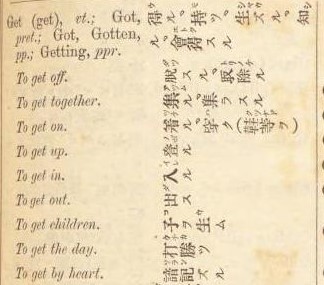 Get (get), vt.; Got, 得ル。持ツ。生ズル。知
pret.; Got, Gotten, ル。會得スル
pp.; Getting, ppr.
To get off. 脱スル。取除ル
To get together. 集ル。集ラスル
To get on. 着ル。穿ク(鞋等ヲ)
To get up. 登ル
To get in. 入ル
To get out. 出ス
To get children. 子ヲ生ム
To get the day. 打勝ツ
To get by heart. 諳記ズル